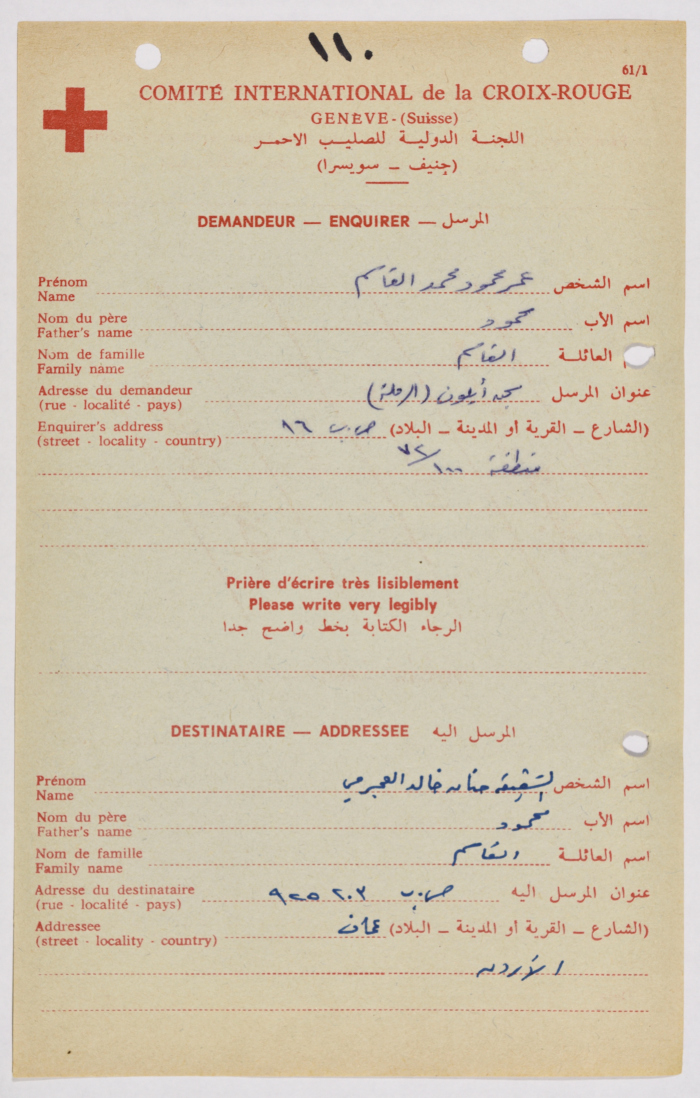 ١١٠
61/1
COMITÉ INTERNATIONAL de la CROIX-ROUGE
GENÈVE - (Suisse)
اللجنـة الدوليـة للصليـب الاحمـر
(جنيف – سويسرا)
DEMANDEUR — ENQUIRER — المرسل
Prénom
Name
اسم الشخص عمر محمود محمد القاسم
Nom du père
Father's name
اسم الأب محمود
Nom de famille
Family name
م العائلـة القاسم
Adresse du demandeur
(rue - localité - pays)
عنوان المرسل سجن أيلون (الرملة)
Enquirer's address
(street - locality - country)
(الشارع – القرية او المدينة – البلاد) ص.ب ١٦
منطقة ٧٢/١٠٠
Prière d'écrire très lisiblement
Please write very legibly
الرجاء الكتابة بخط واضح جدا
DESTINATAIRE — ADDRESSEE المرسل اليه
Prénom
Name
اسم الشخص الشقيقة حنان خالد العجرمي
Nom du père
Father's name
اسم الأب محمود
Nom de famille
Family name
اسم العائلـة القاسم
Adresse du destinataire
(rue - localité - pays)
عنوان المرسل اليه ص.ب ٩٢٥٢٠٣
Addressee
(street - locality - country)
(الشارع – القرية او المدينة – البلاد) عمان
الأردن